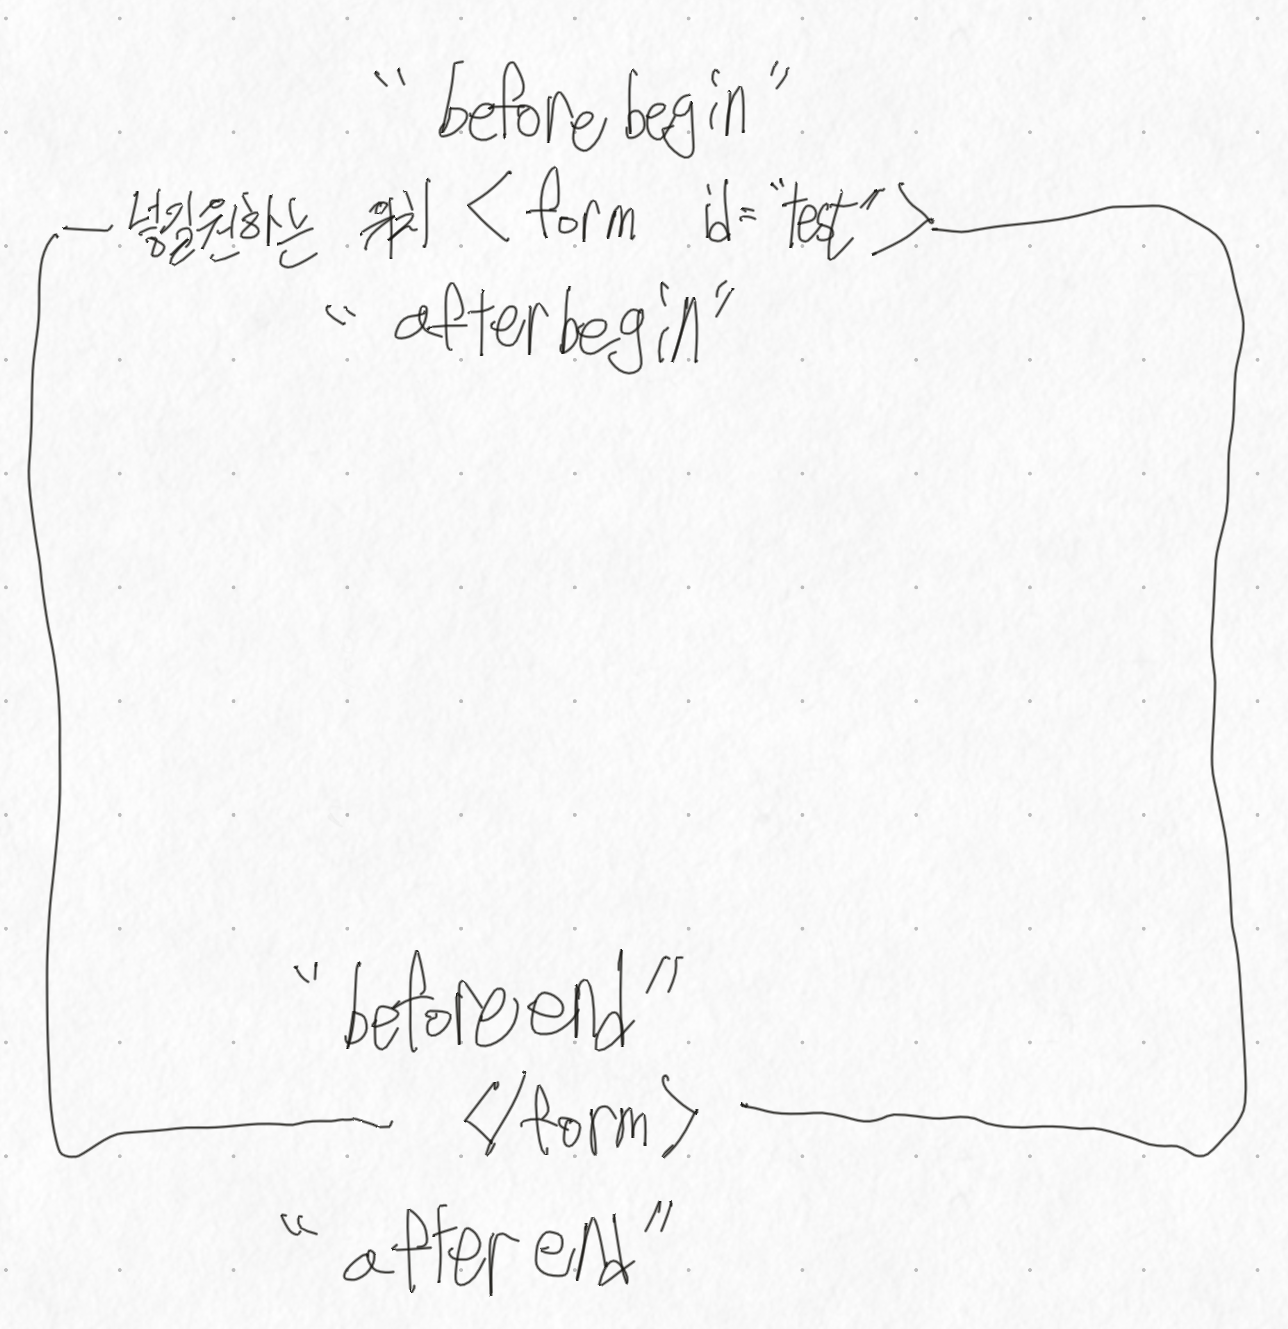 "before begin"
넣길 원하는 위치 <form id="test">
"afterbegin"
"beforeend"
</form>
"after end"